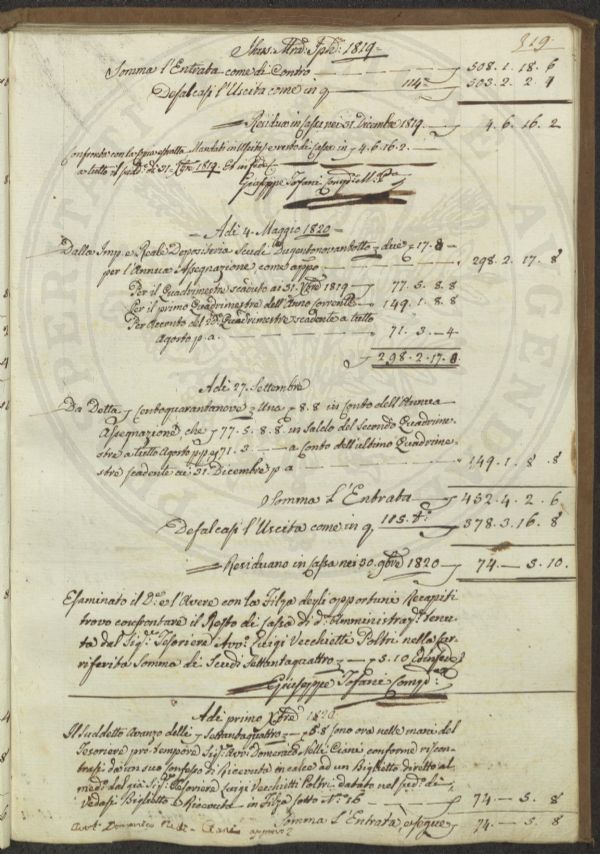 319
1819
Somma l'Entrata come di Contro 508. 1. 18. 6
Defalcasi l'Uscita come in q 114 503. 2. 2. 4
Residuo in Cassa nei 31. Dicembre 1819. 4. 6. 16. 2
Confronta con la sopra esatta e resto di Cassa in 4. 6. 16. 2.
a tutto il sud.º dì 31. Xbre 1819. Et in fede
Giuseppe Tofani Comp.
Adì 4. Maggio 1820
Dalla Imp. e Reale Depositeria Scudi Dugentonovantotto due 17. 8
per l'Annua Assegnazione come appo 298. 2. 17. 8
Per il Quadrimestre scaduto ai 31. Xbre 1819 77. 5. 8. 8
Per il primo Quadrimestre dell'Anno corrente 149. 1. 8. 8
Per acconto del 2º Quadrimestre scadente a tutto
Agosto p. a. 71. 3. — 4
298. 2. 17. 8
Adì 27. Settembre
Da Detta Centoquarantanove Una 8. 8 in Conto dell'Annua
Assegnazione, che 77. 5. 8. 8 in Saldo del Secondo Quadrime-
stre a tutto Agosto pp. e 71. 3. — a Conto dell'ultimo Quadrime-
stre scadente ai 31. Dicembre p. a 149. 1. 8. 8
Somma l'Entrata 452. 4. 2. 6
Defalcasi l'Uscita come in q. 115. 378. 3. 16. 8
Residuano in Cassa nei 30. 9bre 1820 74. — 5. 10.
Esaminato il D.º e l'Avere con la Filza degli opportuni Recapiti
trovo confrontare il Resto di Cassa di d.ª Amministraz. tenu-
ta dal Sig.º Tesoriere Avv.º Luigi Vecchietti Poltri nella sur-
riferita Somma di Scudi Settantaquattro — 5. 10 Ed in fede
Giuseppe Tofani Comp.
Adì primo Xbre 1820
Il Suddetto Avanzo delle Settantaquattro — 5. 8 sono ora nelle mani del
Tesoriere pro tempore Sig. Avv. Domenico Nelli Ciani conforme riscon-
trasi da un suo Confesso di Ricevuta in calce ad un Biglietto diretto al
med.º dal già Sig. Tesoriere Luigi Vecchietti Poltri datato nel sud.º dì,
Vedasi Biglietto e Ricevuta in Filza sotto N.º 16 74. — 5. 8
Somma l'Entrata, e segue 74. — 5. 8
Avv.º Domenico Nelli Ciani